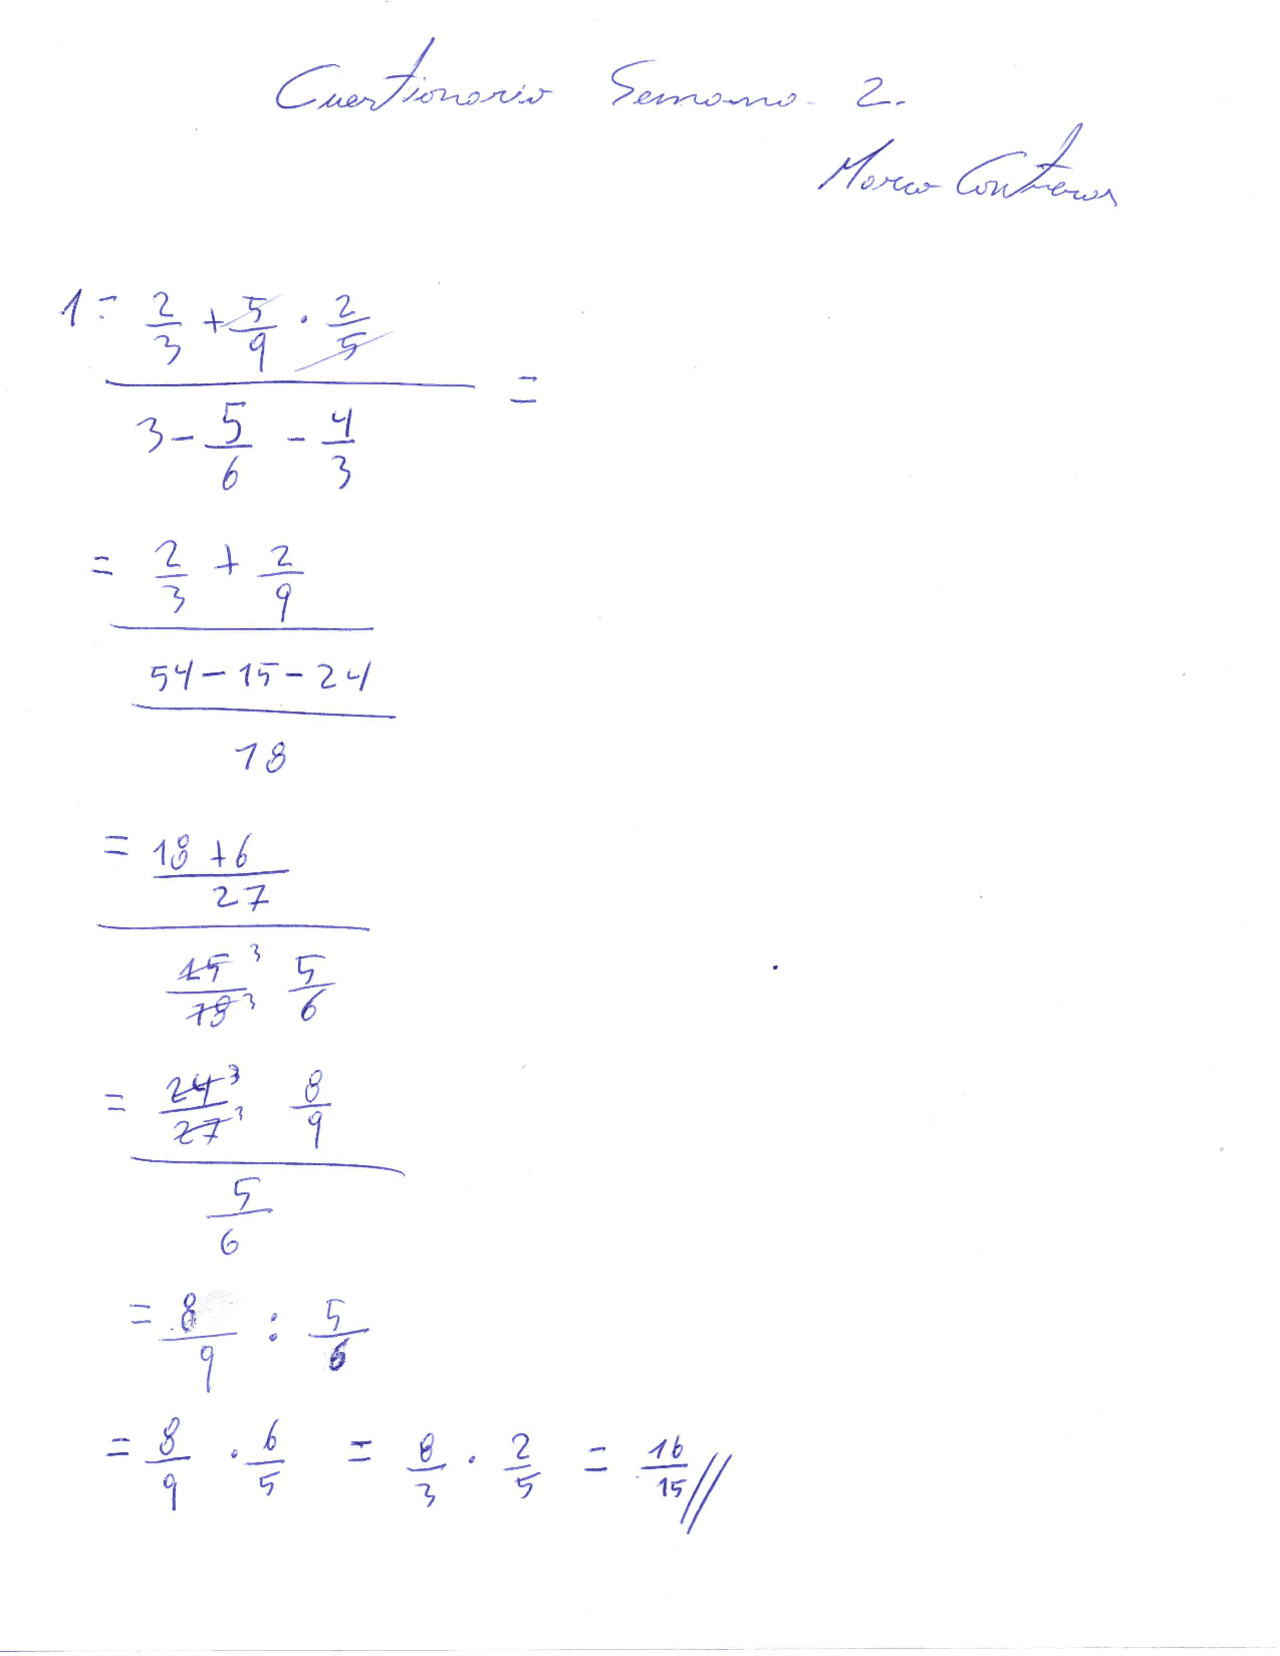 Cuestionario Semana 2.
Marco Contreras
1= 2/3 + 5/9 · 2/5
3 - 5/6 - 4/3 =
= 2/3 + 2/9
54 - 15 - 24
18
= 18 + 6
27
15 3 5
18 3 6
= 24 3 8
27 3 9
5
6
= 8/9 : 5/6
= 8/9 · 6/5 = 8/3 · 2/5 = 16/15 //